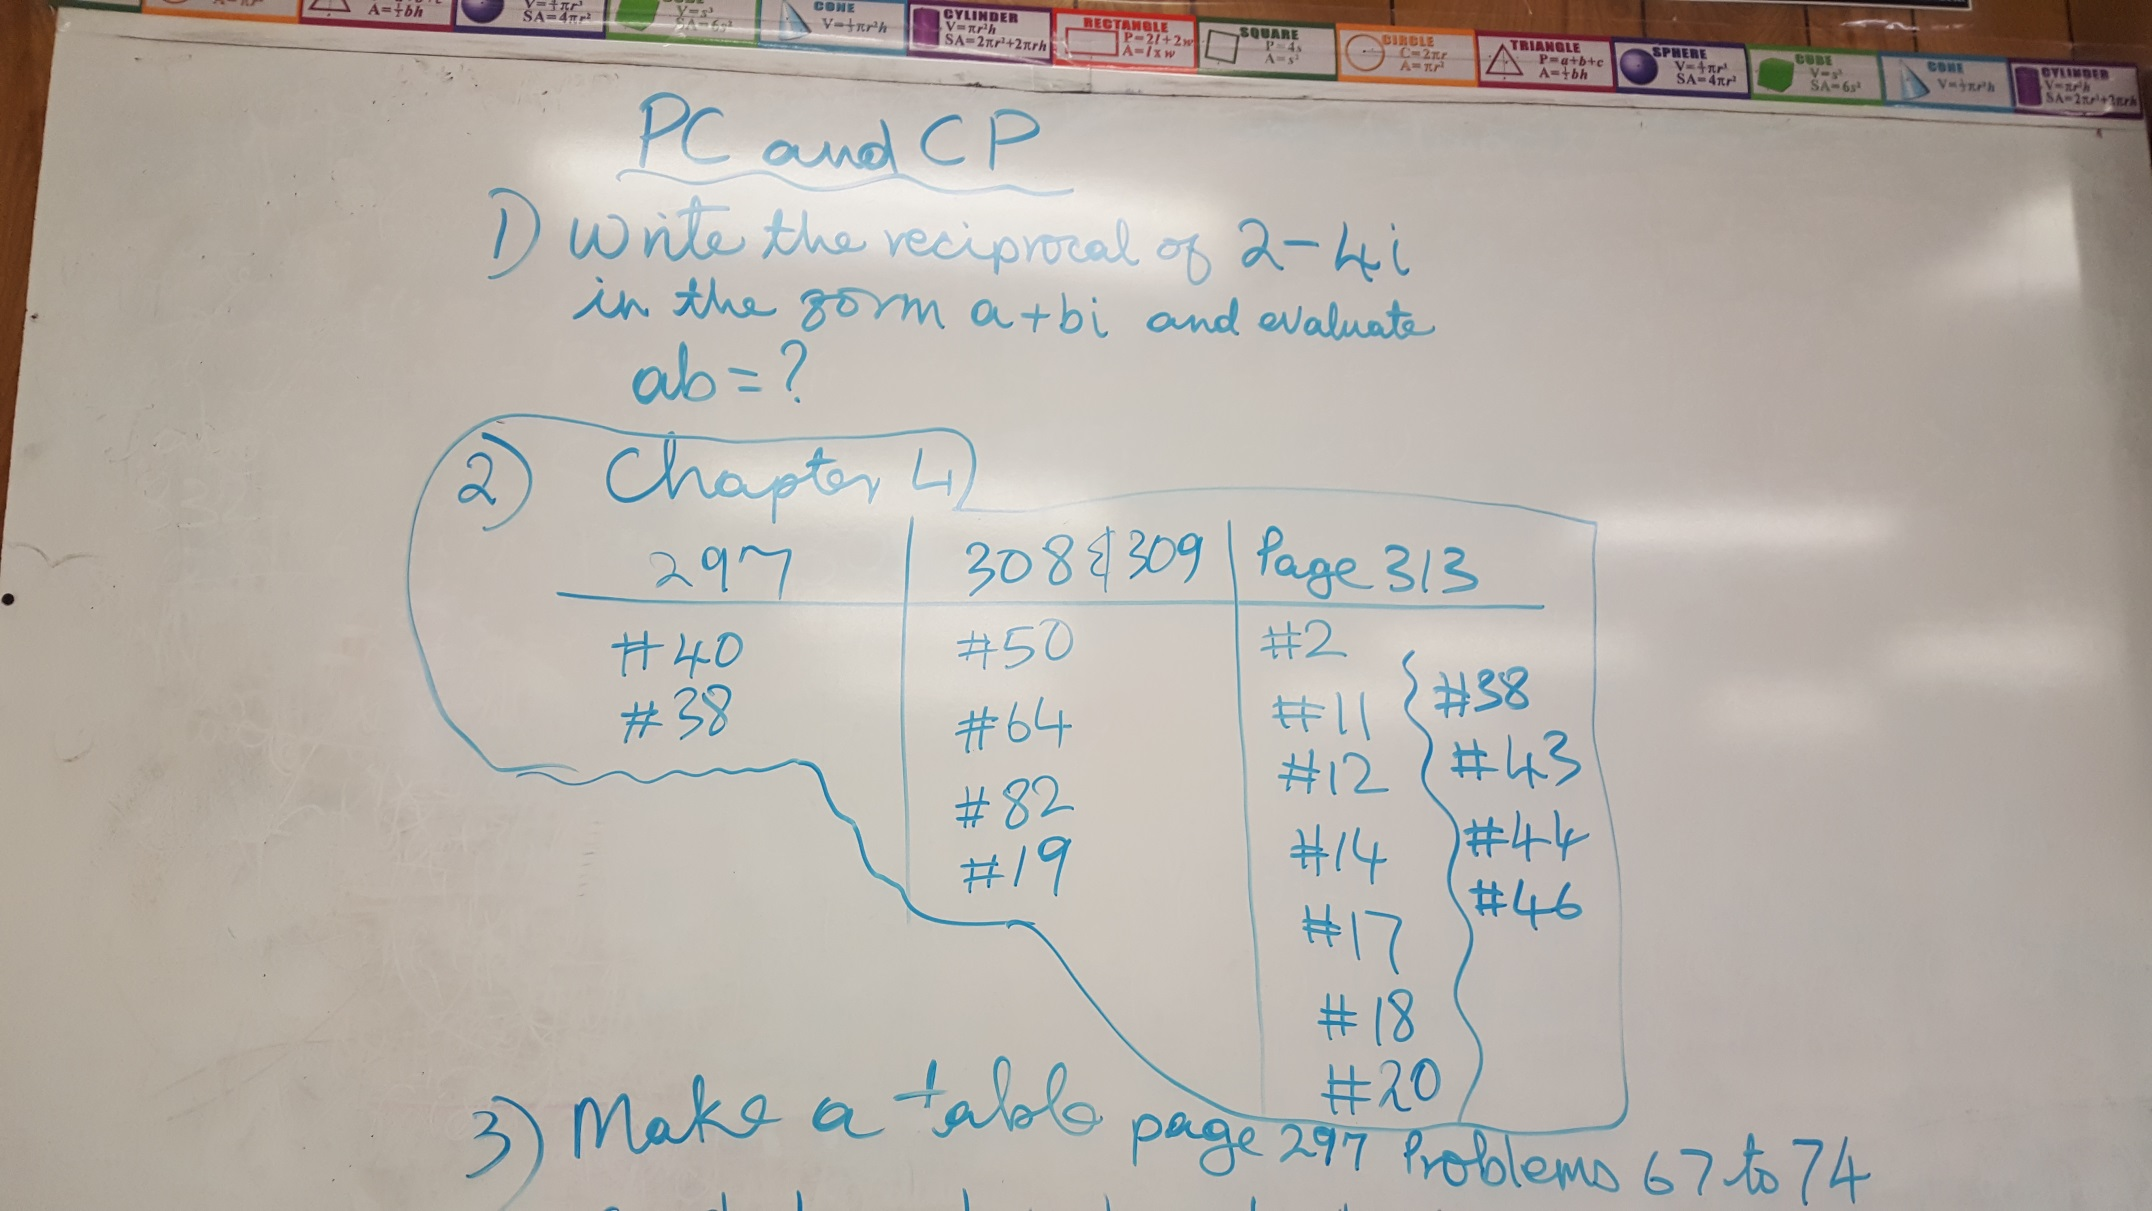 A=½bh
SA=4πr²
V=s³
SA=6s²
CONE
V=⅓πr²h
CYLINDER
V=πr²h
SA=2πr²+2πrh
RECTANGLE
P=2l+2w
A=l x w
SQUARE
P=4s
A=s²
CIRCLE
C=2πr
A=πr²
TRIANGLE
P=a+b+c
A=½bh
SPHERE
V=4/3πr³
SA=4πr²
CUBE
V=s³
SA=6s²
CONE
V=⅓πr²h
CYLINDER
V=πr²h
SA=2πr²+2πrh
PC and CP
1) Write the reciprocal of 2-4i
in the form a+bi and evaluate
ab=?
2) Chapter 4
297 308 & 309 Page 313
#40 #50 #2
#38 #64 #11 #38
#82 #12 #43
#19 #14 #44
#17 #46
#18
#20
3) Make a table page 297 Problems 67 to 74